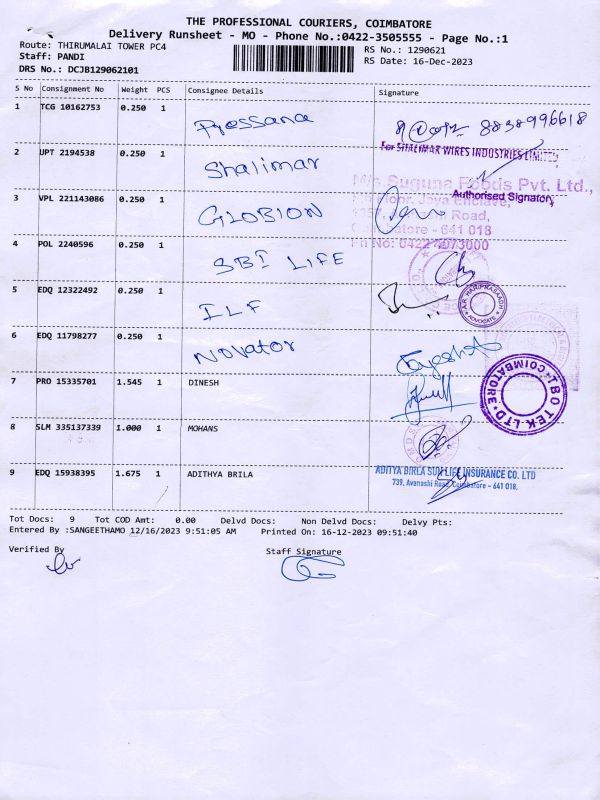 THE PROFESSIONAL COURIERS, COIMBATORE
Delivery Runsheet - MO - Phone No.:0422-3505555 - Page No.:1
Route: THIRUMALAI TOWER PC4
RS No.: 1290621
Staff: PANDI
RS Date: 16-Dec-2023
DRS No.: DCJB129062101
S No Consignment No Weight PCS Consignee Details Signature
1 TCG 10162753 0.250 1 Pressana 8838996618
For SHALIMAR WIRES INDUSTRIES LIMITED
2 UPT 2194538 0.250 1 Shalimar
M/s Suguna Foods Pvt. Ltd.,
Authorised Signatory
3 VPL 221143086 0.250 1 GLOBION
Jaya Enclave,
Road,
Coimbatore - 641 018
4 POL 2240596 0.250 1 SBI LIFE
Ph No: 0422 4073000
5 EDQ 12322492 0.250 1 ILF
HARIPRASAD
ADVOCATE
6 EDQ 11798277 0.250 1 Novator
7 PRO 15335701 1.545 1 DINESH
TBO TEK LTD COIMBATORE
8 SLM 335137339 1.000 1 MOHANS
9 EDQ 15938395 1.675 1 ADITHYA BRILA
ADITYA BIRLA SUN LIFE INSURANCE CO. LTD
739, Avanashi Road, Coimbatore - 641 018.
Tot Docs: 9 Tot COD Amt: 0.00 Delvd Docs: Non Delvd Docs: Delvy Pts:
Entered By :SANGEETHAMO 12/16/2023 9:51:05 AM Printed On: 16-12-2023 09:51:40
Verified By Staff Signature